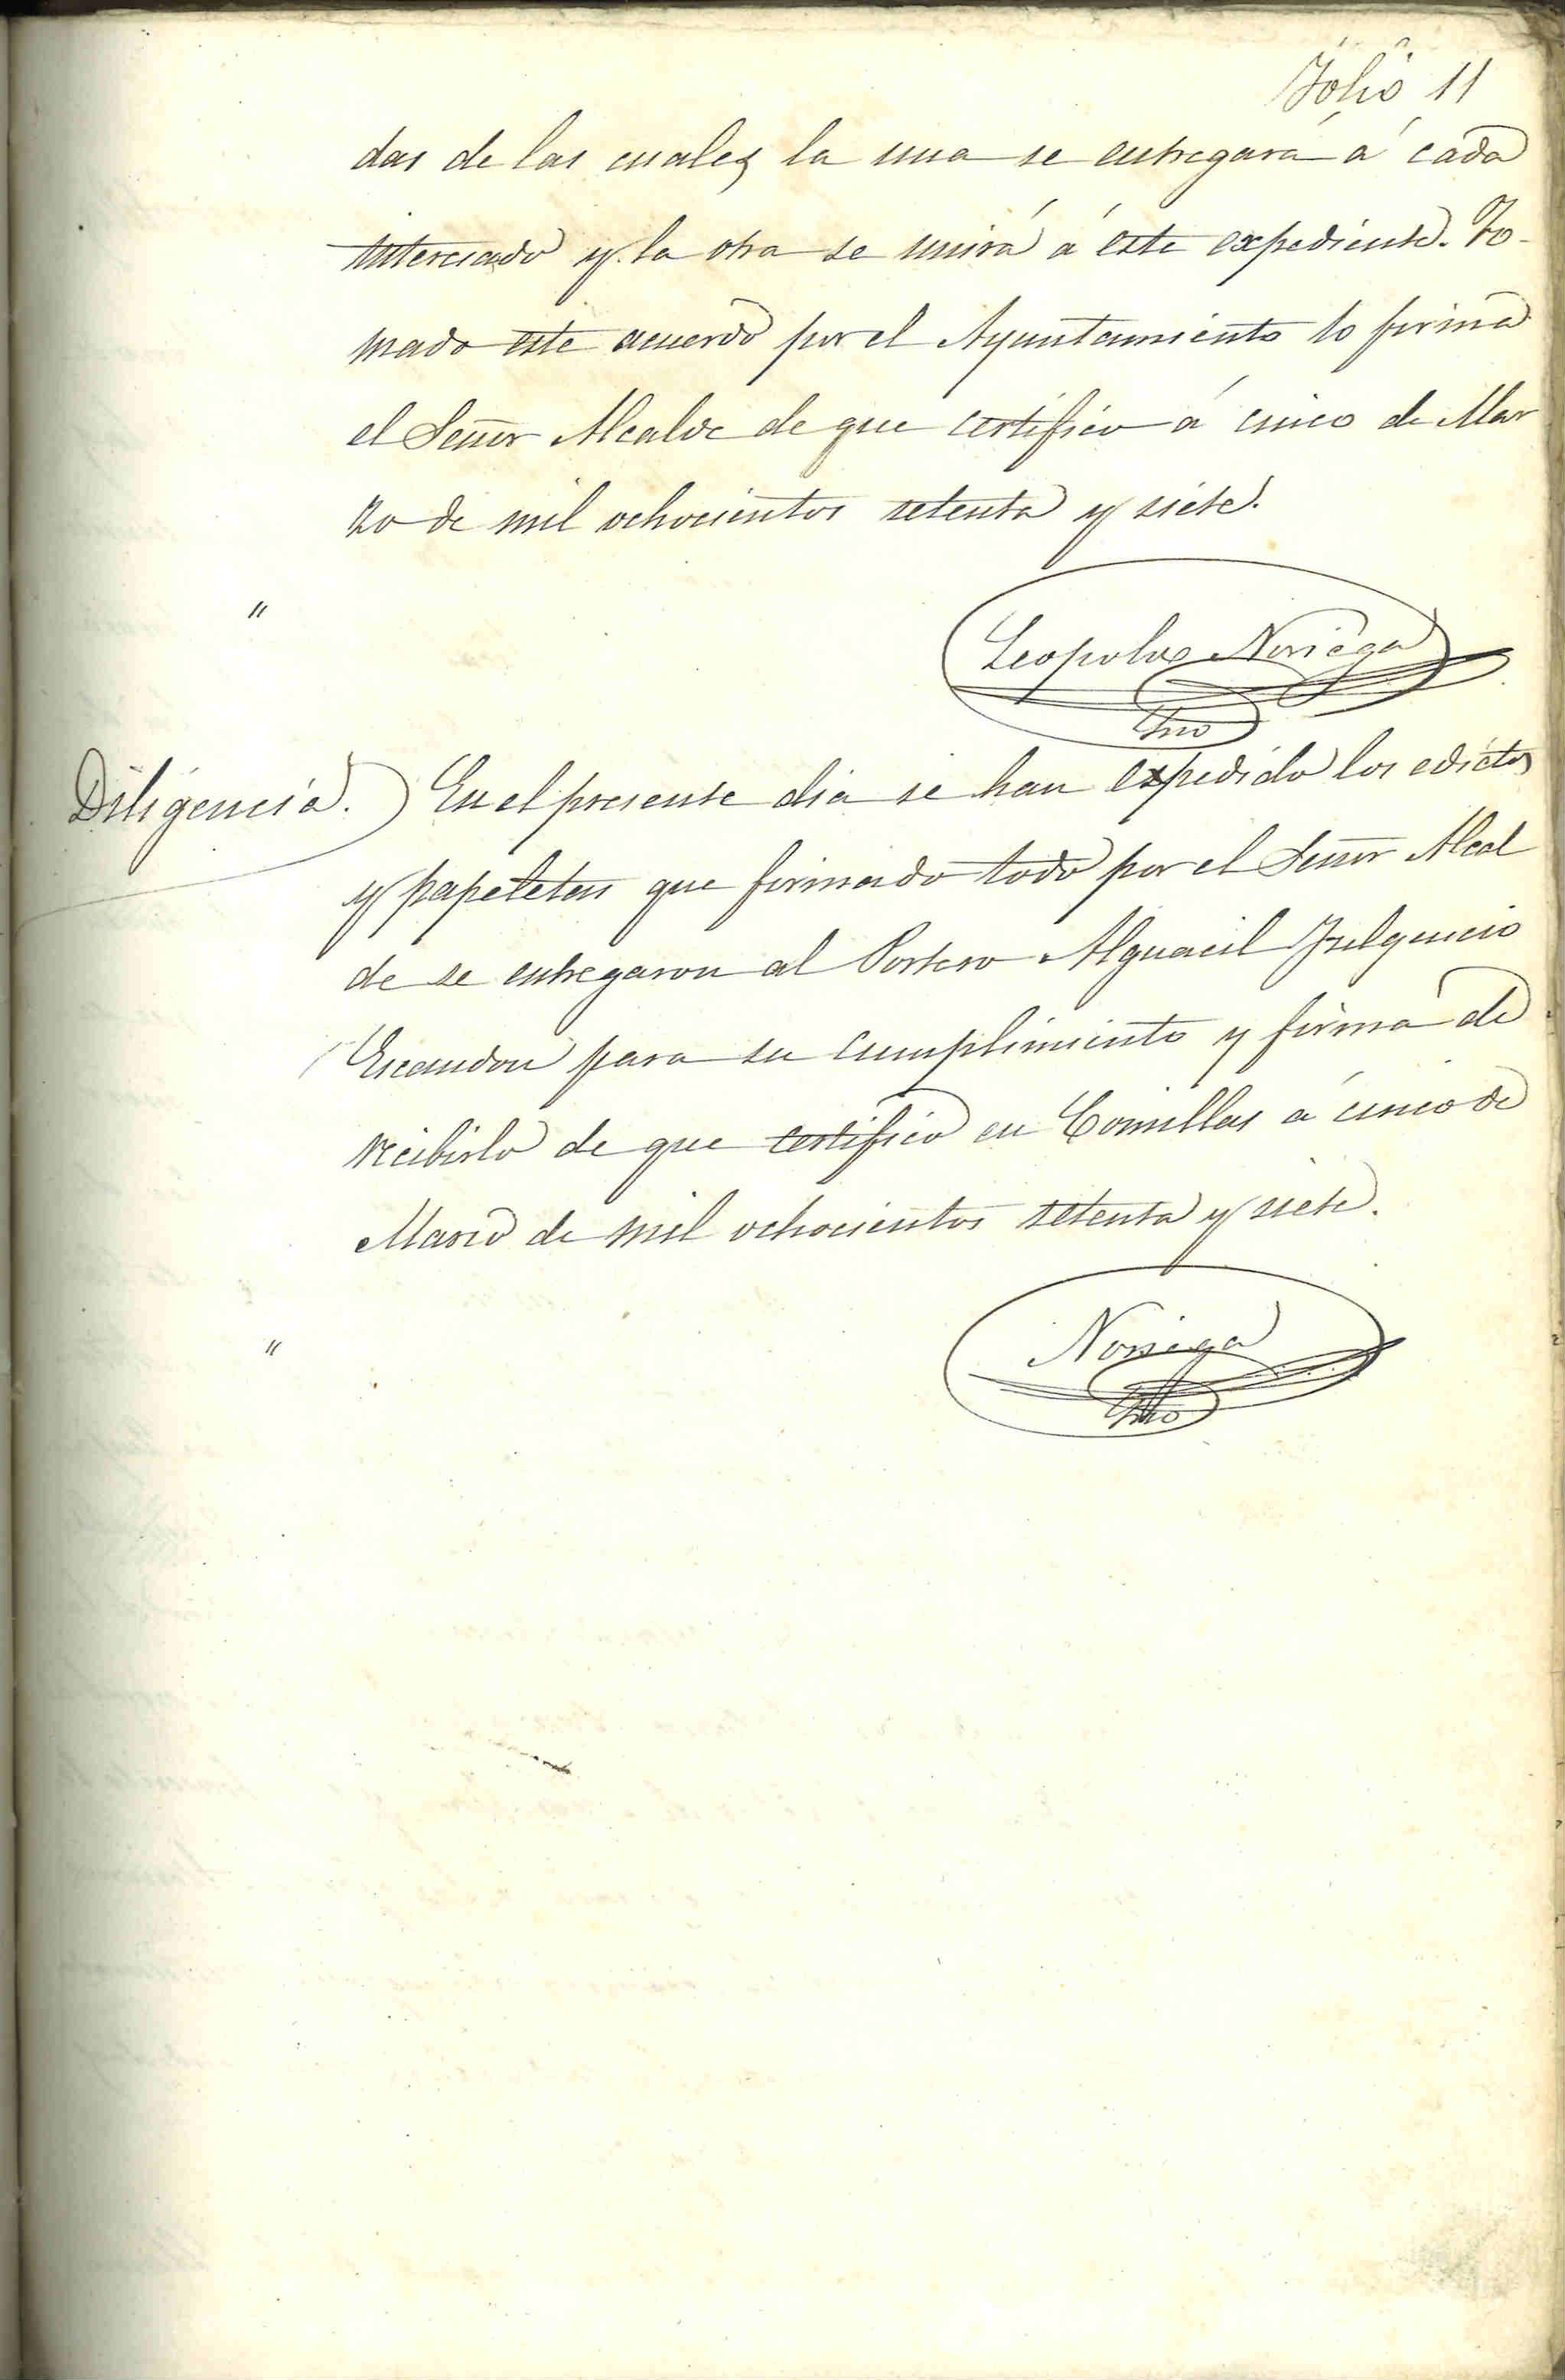 Folio 11
das de las cuales la una se entregará á cada
interesado y la otra se unirá á éste expediente. To-
mado este acuerdo por el Ayuntamiento lo firma
el Señor Alcalde de que certifico á cinco de Mar
zo de mil ochocientos setenta y siete.
"
Leopoldo Noriega
Srio
Diligencia. En el presente dia se han expedido los edictos
y papeletas que firmado todo por el Señor Alcal
de se entregaron al Portero Alguacil Fulgencio
Escandon para su cumplimiento y firma de
recibirlo de que certifico en Comillas á cinco de
Marzo de mil ochocientos setenta y siete.
"
Noriega
Srio